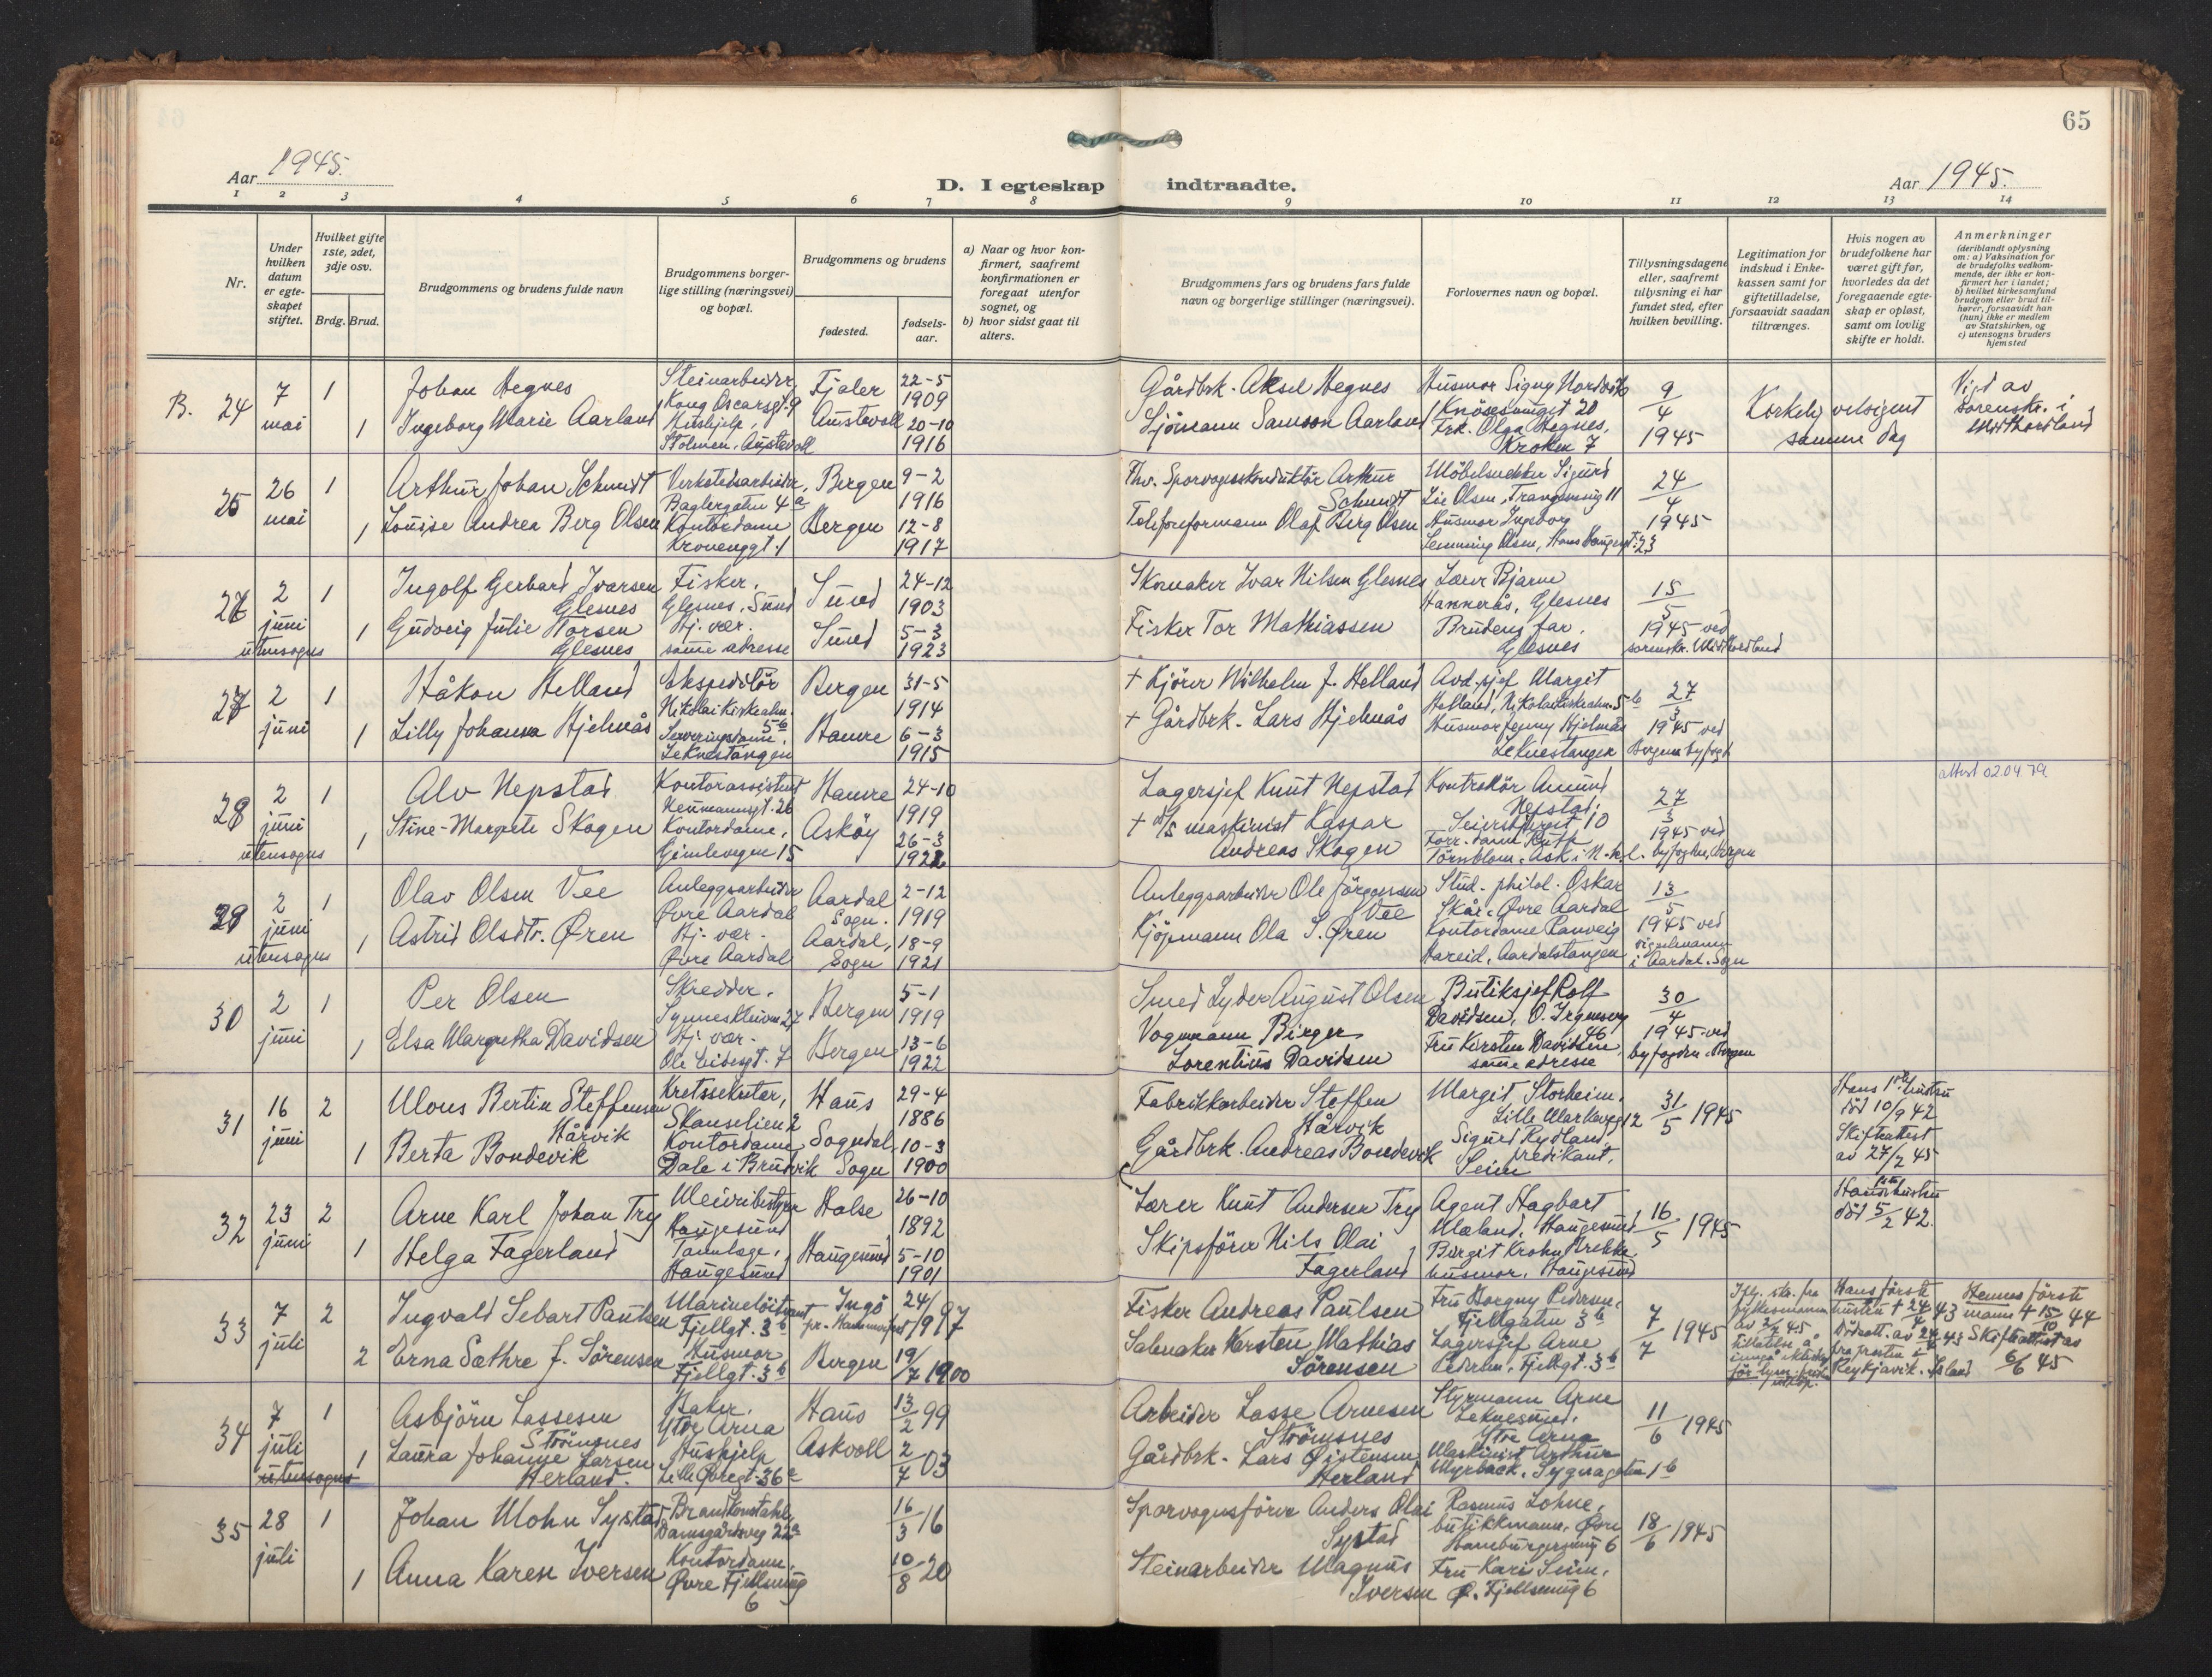 65
Aar 1945.
D. I egteskap indtraadte.
Aar 1945.
1 2 3 4 5 6 7 8 9 10 11 12 13 14
Nr.
Under hvilken datum er egteskapet stiftet.
Hvilket gifte 1ste, 2det, 3dje osv.
Brdg. Brud.
Brudgommens og brudens fulde navn
Brudgommens borgerlige stilling (næringsvei) og bopæl.
Brudgommens og brudens
fødested.
fødselsaar.
a) Naar og hvor konfirmert, saafremt konfirmationen er foregaat utenfor sognet, og
b) hvor sidst gaat til alters.
Brudgommens fars og brudens fars fulde navn og borgerlige stillinger (næringsvei).
Forlovernes navn og bopæl.
Tillysningsdagene eller, saafremt tillysning ei har fundet sted, efter hvilken bevilling.
Legitimation for indskud i Enkekassen samt for giftetilladelse, forsaavidt saadan tiltrænges.
Hvis nogen av brudefolkene har været gift før, hvorledes da det foregaaende egteskap er opløst, samt om lovlig skifte er holdt.
Anmerkninger
(deriblandt oplysning om: a) Vaksination for de brudefolks vedkommende, der ikke er konfirmert her i landet; b) hvilket kirkesamfund brudgom eller brud tilhører, forsaavidt han (hun) ikke er medlem av Statskirken, og c) utensogns bruders hjemsted
B. 24 7 mai 1
Johan Hegnes
Steinarbeider
Kong Oscarsgt. 9
Fjaler
22-5 1909
Gårdbrk. Aksel Hegnes
Husmor Signy Nordvik
Knøsesmuget 20
9/4 1945
Kirkelig velsignet samme dag
Vigd av sorenskr. i Midthordland
1 Ingeborg Marie Aarland
Hushjelp,
Stolmen. Austevoll
Austevoll
20-10 1916
Sjömann Samson Aarland
Frk. Olga Hegnes,
Kroken 7
25 26 mai 1
Arthur Johan Schmidt
Verkstedsarbeider,
Baglergaten 4a
Bergen
9-2 1916
Fhv. Sporvognskonduktör Arthur Schmidt
Möbelsnekker Sigurd
Lie Olsen,
24/4 1945
1 Louise Andrea Berg Olsen
Kontordame
Kronenggt. 1
Bergen
12-8 1917
Teleforformann Olaf Berg Olsen
Husmor Ingeborg
Olsen, Hans Haugesgt. 23
2 juni 1
utensogns
Ingolf Gerhard Ivarsen Glesnes
Fisker.
Glesnes. Sund
Sund
24-12 1903
Skomaker Ivar Nilsen Glesnes
Lærer Bjarne
Hammerås, Glesnes
15/5 1945 ved
sorenskr. Midthordland
1 Gudveig Julie Torsen Glesnes
Hj. vær.
samme adresse
Sund
5-3 1923
Fisker Tor Mathiassen
Brudens far.
Glesnes
27 2 juni 1
Håkon Helland
Ekspeditör
Nikolaikirkealm. 5b
Bergen
31-5 1914
+ Kjörer Wilhelm J. Helland
Avd.sjef Margit
Helland, Nikolaikirkealm. 5b
27/3 1945 ved
Bergens byfogd
1 Lilly Johanna Hjelmås
Serveringsdame,
Leknestangen
Hamre
6-3 1915
+ Gårdbrk. Lars Hjelmås
Husmor Jenny Hjelmås
Leknestangen
28 2 juni 1
utensogns
Alv Nepstad
Kontorassistent
Neumannsgt. 26
Hamre
24-10 1919
Lagersjef Knut Nepstad
Kontrollör Amund
Nepstad.
27/3 1945 ved
byfogden, Bergen
attest 02.04.79
1 Stine-Margrete Skogen
Kontordame,
Gimlevegen 15
Asköy
26-3 1922
+ maskinist Kaspar
Andreas Skogen
Korr. dame Ruth
Törnblom. Ask i N.h.l.
29 2 juni 1
utensogns
Olav Olsen Vee
Anleggsarbeider
Øvre Aardal
Aardal Sogn.
2-12 1919
Anleggsarbeider Ole Jörgensen Vee
Stud. philol. Oskar
Skår. Øvre Aardal
13/5 1945 ved
i Aardal. Sogn
1 Astrid Olsdtr. Øren
Hj. vær.
Øvre Aardal
Aardal, Sogn
18-9 1921
Kjöpmann Ola S. Øren
Kontordame Ranveig
Hareid, Aardalstangen
30 2 juni 1
Per Olsen
Skredder.
27
Bergen
5-1 1919
Smed Lyder August Olsen
Butiksjef Rolf
Davidsen, O. Irgensveg 46
30/4 1945 ved
byfogden. Bergen
1 Elsa Margretha Davidsen
Hj. vær.
7
Bergen
13-6 1922
Vognmann Birger
Lorentius Davidsen
Fru Kirsten Davidsen
samme adresse
31 16 juni 2
Mons Bertin Steffensen Hårvik
Kretssekretær,
Skanselien 2
Haus
29-4 1886
Fabrikkarbeider Steffen Hårvik
Margit Storheim.
Lille Markevegen 12
31/5 1945
Hans 1ste hustru
död 10/9 42
Skifteattest
av 27/2 45
1 Berta Bondevik
Kontordame
Dale i Bruvik
Sogndal, Sogn
10-3 1900
Gårdbrk. Andreas Bondevik
Sigurd Rydland,
predikant.
Seim
32 23 juni 2
Arne Karl Johan Try
Meieribestyrer
Haugesund
Halse
26-10 1892
Lærer Knut Andersen Try
Agent Hagbart
Mæland. Haugesund
16/5 1945
Hans 1ste hustru
död 5/2 42.
1 Helga Fagerland
Tannlæge,
Haugesund
Haugesund
5-10 1901
Skipsförer Nils Olai
Fagerland
Birgit Krohn
husmor. Haugesund
33 7 juli 2
Ingvald Sebart Paulsen
Marinelöitnant
Fjellgt. 3b
Ingö pr. Hammerfest
24/9 97
Fisker Andreas Paulsen
Fru Borgny Pedersen.
Fjellgaten 3b
7/7 1945
Iflg. skr. fra
fylkesmannen
av 2/7 45
tillatelse å
inngå ekteskap
Hans förste
hustru + 24/4 43
Dödsatt. av 24/4 43
fra presten i
Reykjavik. Island
Hennes förste
mann + 15/10 44
Skifteattest av
6/6 45
2 Erna Sæthre f. Sörensen
Husmor
Fjellgt. 3b
Bergen
19/7 1900
Salmaker Karsten Mathias
Sörensen
Lagersjef Arne
Pedersen, Fjellgt. 3b
34 7 juli 1
utensogns
Asbjörn Lassesen Strömsnes
Baker.
Ytre Arna
Haus
13/2 99
Arbeider Lasse Arnesen
Strömsnes
Styrmann Arne
Leknesund.
Ytre Arna
11/6 1945
1 Laura Johanne Larsen Herland.
Hushjelp
Lille Øvregt. 36a
Askvoll
2/7 03
Gårdbrk. Lars Øistensen
Herland
Maskinist Arthur
Myrbäck. 1b
35 28 juli 1
Johan Mohn Systad
Brandkonstabel,
Damsgårdsveg 22a
16/3 16
Sporvognsförer Anders Olai
Systad
Rasmus Lohne,
butikkmann. Øvre
Hamburgersmug 6
18/6 1945
1 Anna Karen Iversen
Kontordame.
Øvre Fjellsmug 6
10/8 20
Steinarbeider Magnus
Iversen
Fru Kari Seim.
Ø. Fjellsmug 6